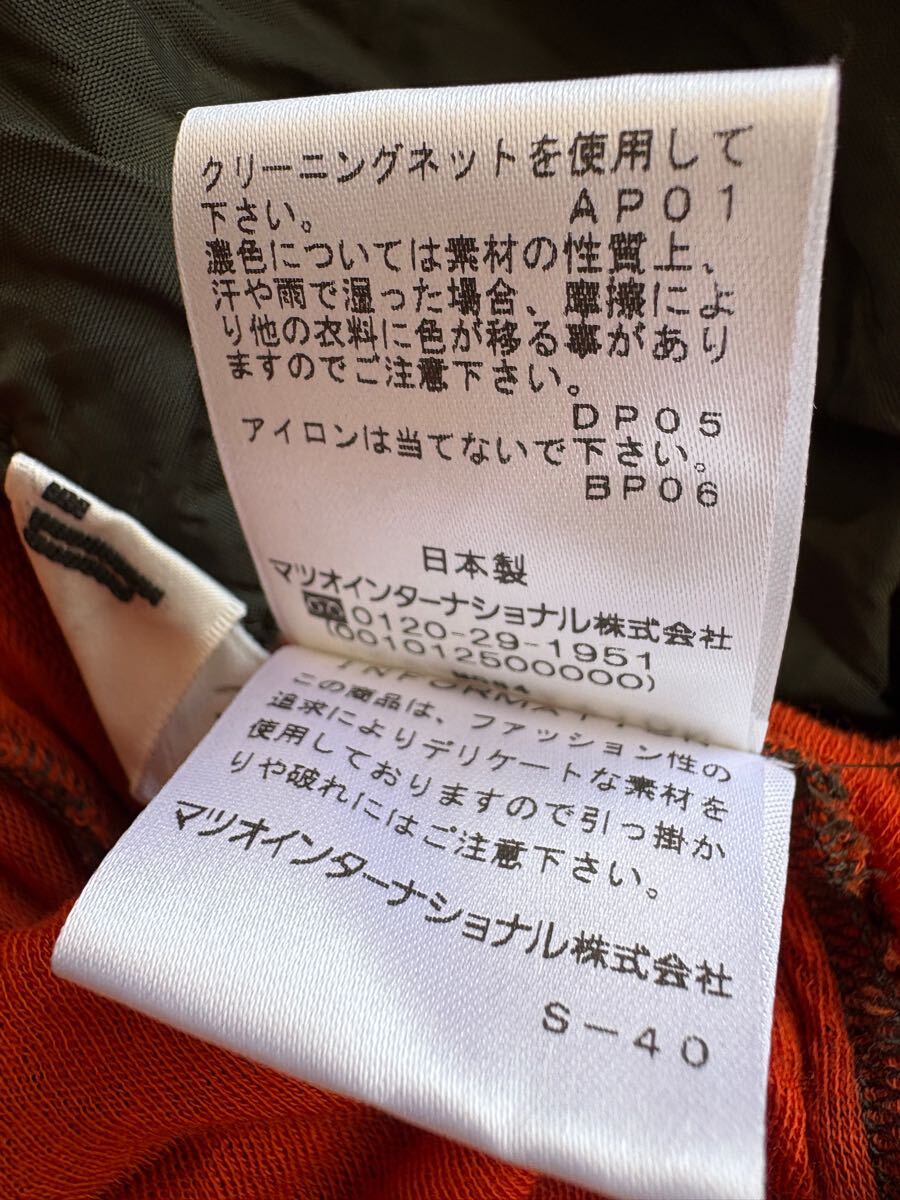 クリーニングネットを使用して
下さい。 AP01
濃色については素材の性質上、
汗や雨で湿った場合、摩擦によ
り他の衣料に色が移る事があり
ますのでご注意下さい。
DP05
アイロンは当てないで下さい。
BP06
日本製
マツオインターナショナル株式会社
0120-29-1951
(001012500000)
INFORMATION
この商品は、ファッション性の
追求によりデリケートな素材を
使用しておりますので引っ掛か
りや破れにはご注意下さい。
マツオインターナショナル株式会社
S-40